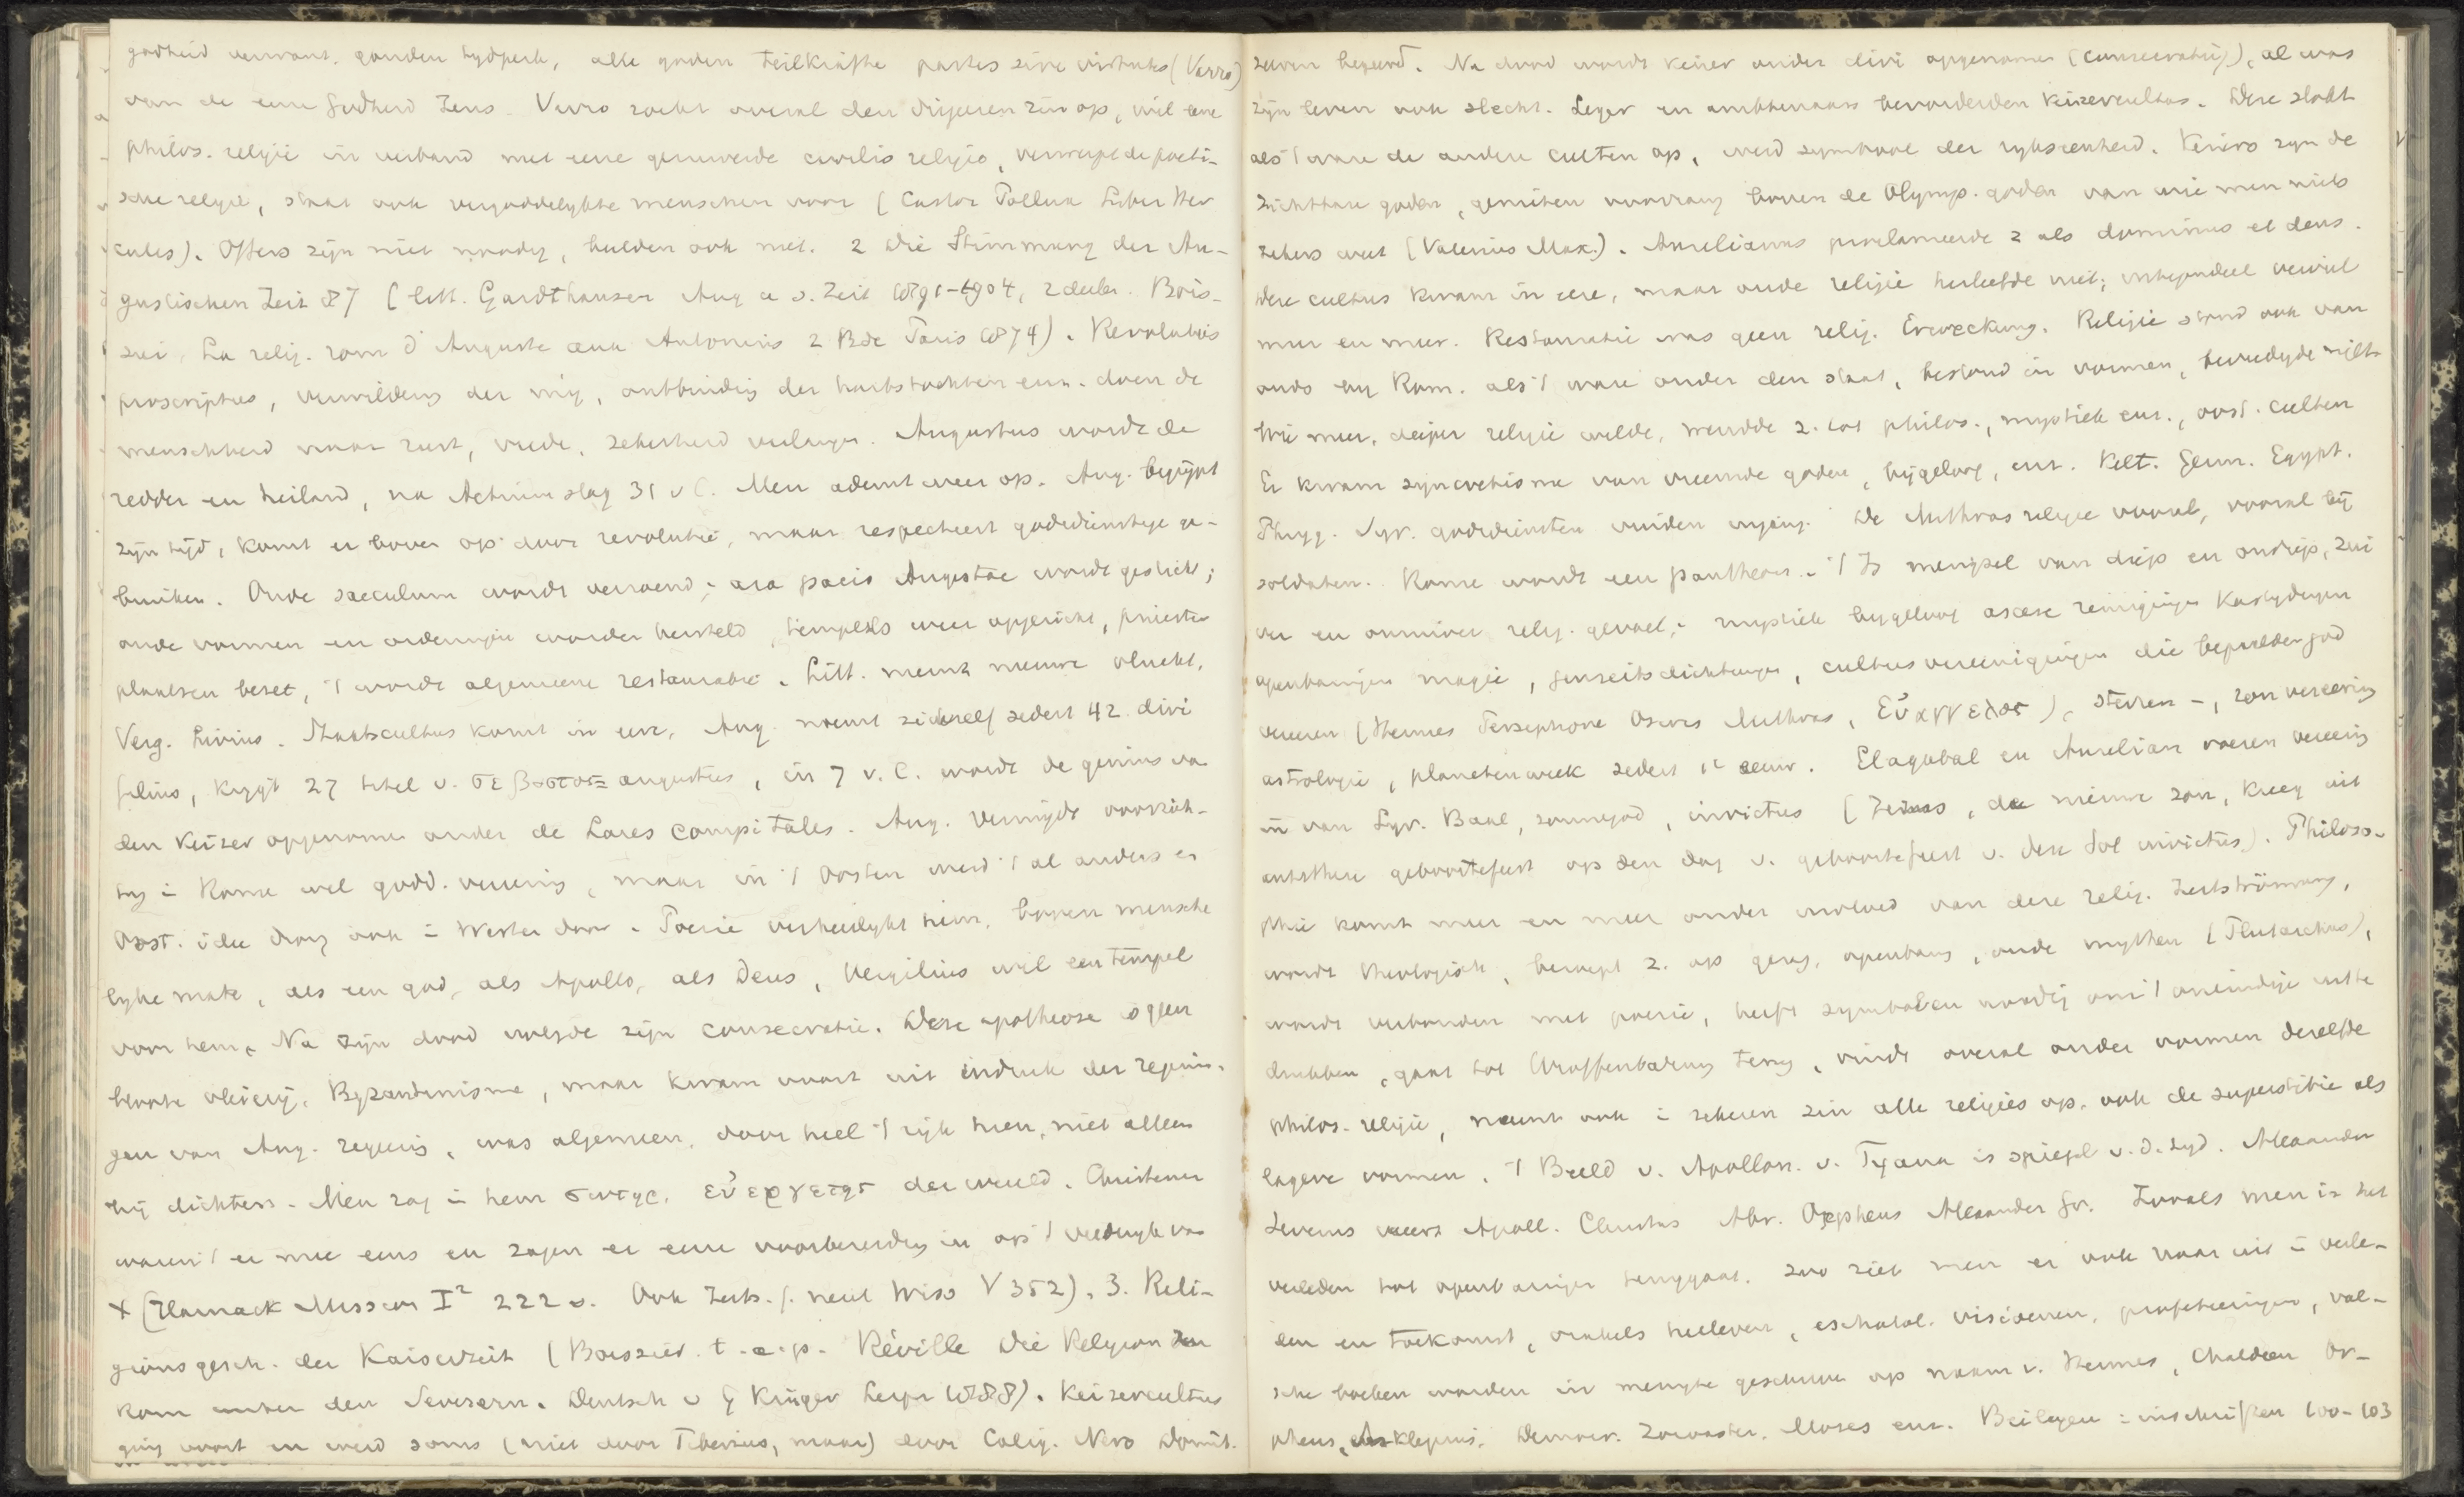 godheid verwant. gouden tydperk, alle goden Teilkräfte partes sive virtutes (Varro)
van de eene Godheid Zeus. Varro zoekt overal den diepeeren zin op, wil eene
philos. religie in verband met eene gezuiverde civilis religio, verwerpt de poeti-
sche religie, staat ook vergoddelykte menschen voor (Castor Pollux Liber Her
cules). Offers zijn niet noodig, beelden ook niet. 2 Die Stimmung der Au-
gustischen Zeit 87 (litt. Gardthausen Aug u s. Zeit 1891-1904, 2 deelen. Bois-
sier, La relig. rom d'Auguste aux Antonins 2 Bde Paris 1874). Revoluties
proscripties, verwildering der, ontbinding der hartstochten enz. doen de
menschheid naar rust, vrede, zekerheid verlangen. Augustus wordt de
redder en heiland, na Actium slag 31 v C. Men ademt weer op. Aug. begrijpt
zijn tijd, komt er boven op door revolutie, maar respecteert godsdienstige ge-
bruiken. Oude saeculum wordt verzoend; ara pacis Augustae wordt gesticht;
oude vormen en ordeningen worden hersteld, tempels weer opgericht, priester
plaatsen bezet, 't wordt algemeene restauratie. Litt. neemt nieuwe vlucht,
Verg. Livius. Staatscultus komt in eere, Aug. noemt zichzelf sedert 42 divi
filius, krygt 27 titel v. σεβαστος = augustus, in 7 v. C. wordt de genius van
den keizer opgenomen onder de Lares compitales. Aug. vermijdt voorzich-
tig i Rome wel godd. vereering, maar in 't Oosten werd 't al anders en
Oost. idee drong ook i Westen door. Poezie verheerlykt hem, boven mensche
lyke mate, als een god, als Apollo, als Deus, Vergilius wil een tempel
voor hem. Na zijn dood volgde zijn consecratie. Deze apotheose is geen
bloote vleierij, Byzantinisme, maar kwam voort uit indruk der zegenin-
gen van Aug. regeering, was algemeen, door heel 't rijk heen, niet alleen
bij dichters. Men zag i hem σωτηρ, εὐεργετης der wereld. Christenen
waren 't er mee eens en zagen er eene voorbereiding in op 't vrederyk van
X (Harnack Mission I² 222 v. Ook Zeits. f. neut Wiss V 352). 3. Reli-
gionsgesch. der Kaiserzeit (Boissier t.a.p. Réville Die Religion zu
Rom unter den Severern. Deutsch v G Krüger Leipz 1888). Keizercultus
ging voort en werd soms (niet door Tiberius, maar) door Calig. Nero Domit.
zelven begeerd. Na dood wordt keizer onder divi opgenomen (consecratie), al was
zijn leven ook slecht. Leger en ambtenaars bevorderden keizercultus. Deze slokt
als 't ware de andere culten op, werd symbool der ryksceenheid. Keizers zyn de
zichtbare goden, genieten voorrang boven de Olymp. goden van wie men niets
zekers weet (Valerius Max.). Aurelianus proclameerde z als dominus et deus.
Deze cultus kwam in eere, maar oude religie herleefde niet; integendeel verviel
meer en meer. Restauratie was geen relig. Erweckung. Religie stond ook van
ouds by Rom. als 't ware onder den staat, bestond in vormen, bevredigde niet.
Wie meer, dieper religie wilde, wendde z. tot philos., mystiek enz., oost. culten
Er kwam syncretisme van vreemde goden, bijgeloof, enz. Kelt. Germ. Egypt.
Phryg. Syr. godsdiensten vinden ingang. De Mithras religie vooral, vooral bij
soldaten. Rome wordt een pantheon. 't Is mengsel van diep en ondiep, zui
ver en onzuiver relig. gevoel; mystiek bygeloof ascese reinigingen kastydingen
openbaringen magie, Jenseitsdichtungen, cultusvereenigingen die bepaalden god
vereeren (Hermes Persephone Osiris Mithras, Εὐαγγελος), sterren -, zon vereering
astrologie, planetenweek sedert 1e eeuw. Elagabal en Aurelian voeren vereering
in van Syr. Baal, zonnegod, invictus (, de nieuwe zon, kreeg uit
 geboortefeest op den dag v. geboortefeest v. deze Sol invictus). Philoso-
phie komt meer en meer onder invloed van deze relig. Zeitströmung,
wordt theologisch, beroept z. op, openbaring, oude mythen (Plutarchus),
wordt verbonden met poezie, heeft symbolen noodig om 't oneindige uit te
drukken, gaat tot Uroffenbarung terug, vindt overal onder vormen dezelfde
philos. religie, neemt ook i zekeren zin alle religies op, ook de superstitie als
lagere vormen. 't Beeld v. Apollon. v. Tyana is spiegel v. d. tyd. Alexander
Severus vereert Apoll. Christus Abr. Orpheus Alexander Gr. Zooals men in het
verleden tot openbaringen teruggaat, zoo ziet men er ook naar uit i verle-
den en toekomst, orakels herleven, eschatol. visioenen, profeteeringen, val-
sche boeken worden in menigte geschreven op naam v. Hermes, Chaldeen Or-
pheus, Asklepius, Democr. Zoroaster, Moses enz. Beilagen: inschriften 100-103